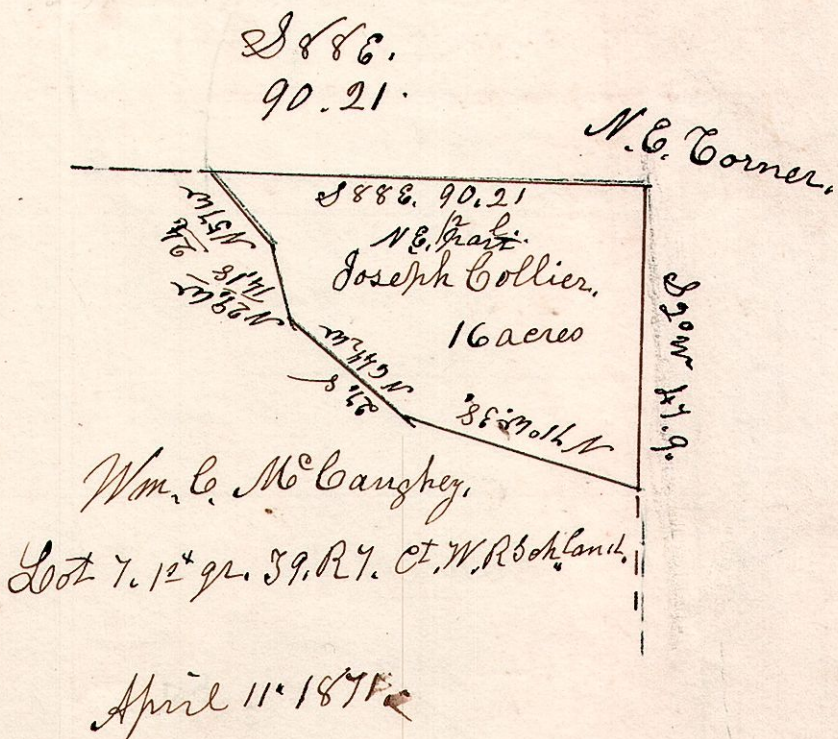 S 88 E.
90.21.
N.E. Corner.
S 88 E. 90.21
N.E. Part.
Joseph Collier.
16 acres
N 57 W
24.
N 29. W
14.18
N 64½ W
27.8
N 71° W. 38.
S 2° W 47.9.
Wm. C. McCaughey.
Lot 7. 1st gr. 39. R 7. Ct. W. R Sch. Land.
April 11. 1871.